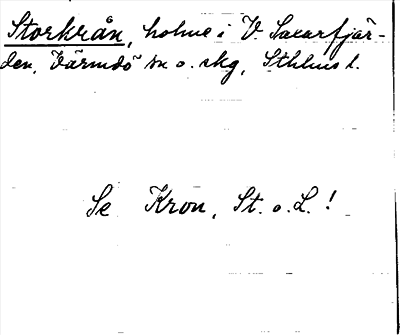 Storkrån, holme i V. Saxarfjär-
den, Värmdö sn o. skg, Sthlms l.
Se Kron, St. o. L. !